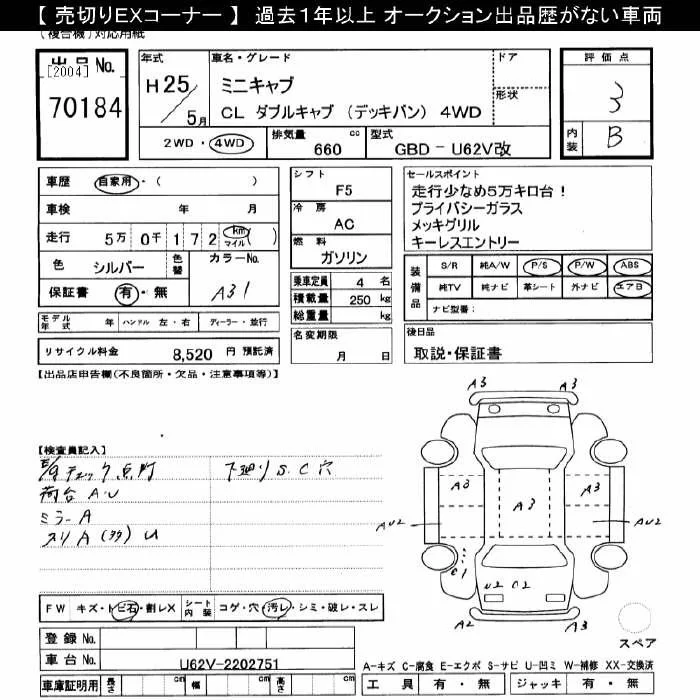 【 売切りEXコーナー 】 過去1年以上 オークション出品歴がない車両
(複合機)対応用紙
出品 No.
[2004]
70184
年式
H 25 / 5 月
車名・グレード
ミニキャブ
CL ダブルキャブ (デッキバン) 4WD
ドア
形状
2WD ・ 4WD
排気量 cc
660
型式
GBD - U62V改
評価点
3
内装
B
車歴 自家用 ・ ( )
車検 年 月
走行 5万 0千 1 7 2 km マイル ( )
色 シルバー 色替 カラーNo.
保証書 有 ・ 無 A31
モデル年式 年 ハンドル 左 ・ 右 ディーラー ・ 並行
リサイクル料金 8,520 円 預託済
シフト
F5
冷房
AC
燃料
ガソリン
乗車定員 4 名
積載量 250 kg
総重量 kg
名変期限
月 日
セールスポイント
走行少なめ5万キロ台!
プライバシーガラス
メッキグリル
キーレスエントリー
装備品
S/R 純A/W P/S P/W ABS
純TV 純ナビ 革シート 外ナビ エアB
ナビ型番:
後日品
取説・保証書
【出品店申告欄(不良箇所・欠品・注意事項等)】
【検査員記入】
E/gチェック点灯 下廻りS.C穴
荷台 A.U
ミラーA
スリA(多)U
A3 A3
A3 A3 A3
AU2 AU2
C1
U2 C2
A2 A3
FW キズ・トビ石・割レX シート内装 コゲ・穴・汚レ・シミ・破レ・スレ
スペア
登録 No.
車台 No. U62V-2202751
A-キズ C-腐食 E-エクボ S-サビ U-凹ミ W-補修 XX-交換済
車庫証明用 長さ 幅 高さ
工具 有 ・ 無 ジャッキ 有 ・ 無